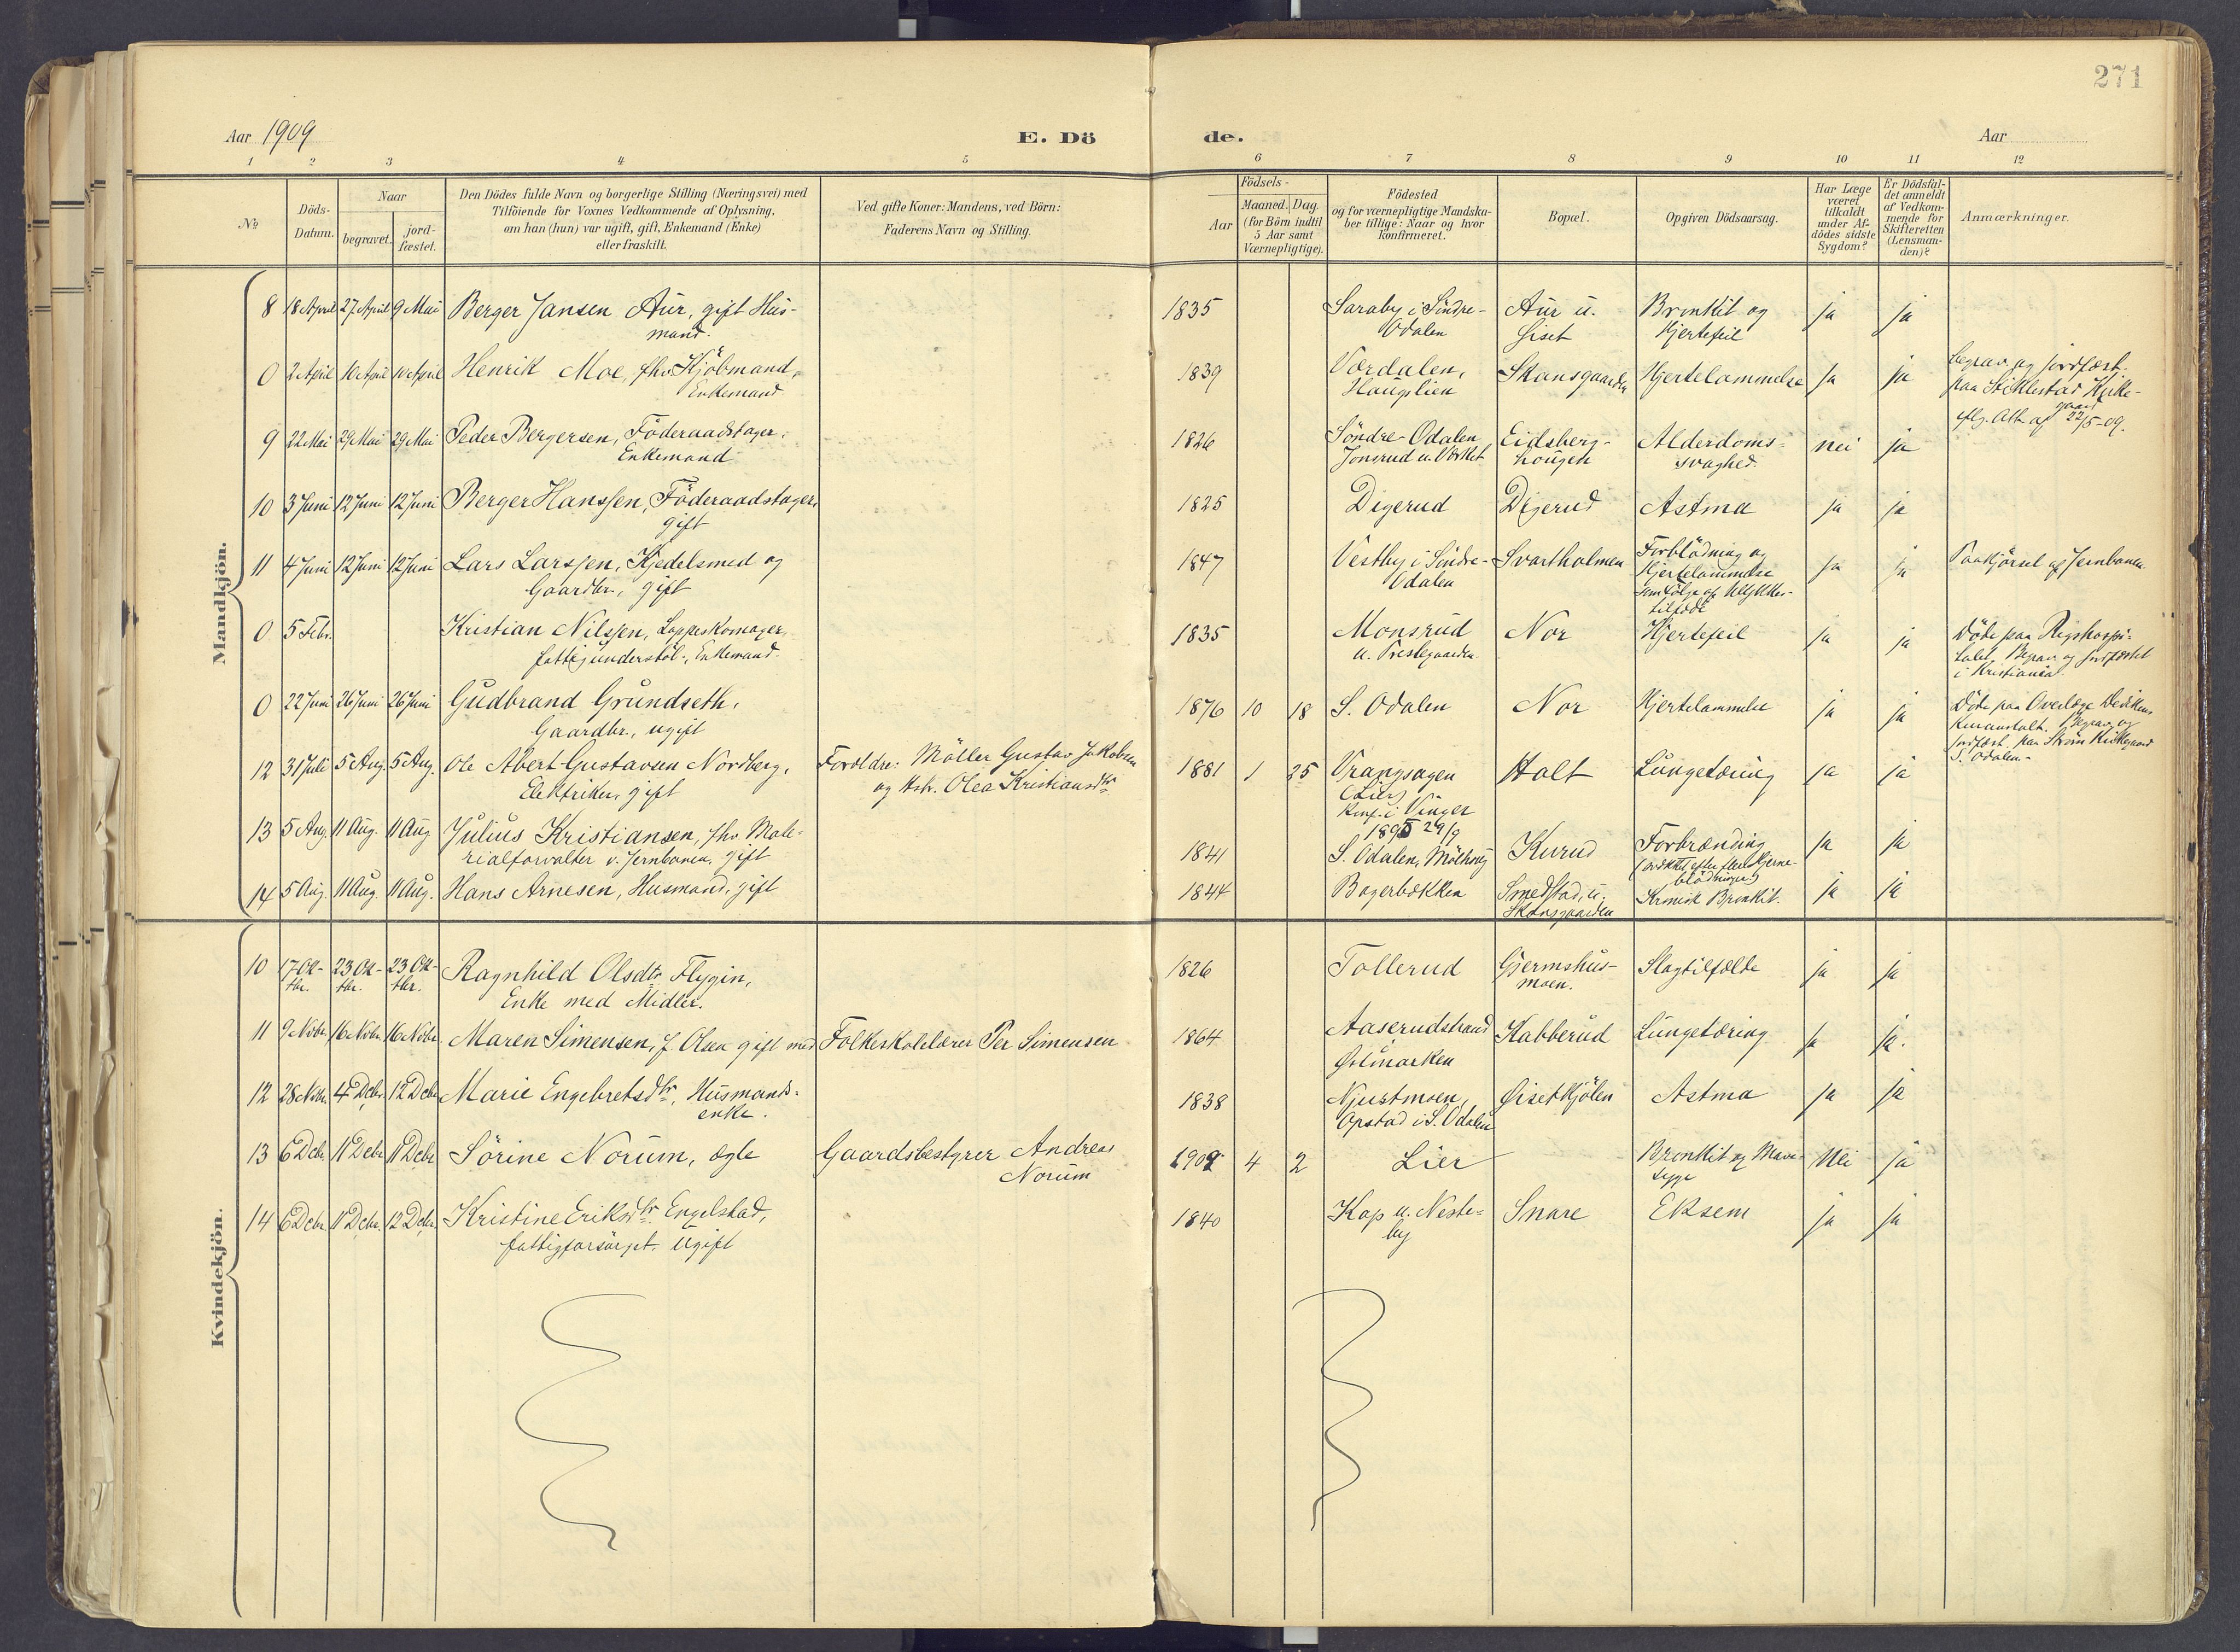 271
Aar 1909
E. Dö
de.
Aar
1 2 3 4 5 6 7 8 9 10 11 12
No
Döds-
Datum.
Naar
begravet.
jord-
fæstet.
Den Dödes fulde Navn og borgerlige Stilling (Næringsvei) med
Tilföiende for Voxnes Vedkommende af Oplysning,
om han (hun) var ugift, gift, Enkemand (Enke)
eller fraskilt.
Ved gifte Koner: Mandens, ved Börn:
Faderens Navn og Stilling.
Födsels-
Aar
Maaned. Dag.
(for Börn indtil
5 Aar samt
Værnepligtige).
Födested
og for værnepligtige Mandska-
ber tillige: Naar og hvor
konfirmeret.
Bopæl.
Opgiven Dödsaarsag.
Har Læge
været
tilkaldt
under Af-
dödes sidste
Sygdom?
Er Dödsfal-
det anmeldt
af Vedkom-
mende for
Skifteretten
(Lensman-
den)?
Anmærkninger.
Mandkjön.
8 18 April 27 April 9 Mai Berger Jansen Aur, gift Hus-
mand.
1835 Saraby i Söndre-
Odalen
Aur u.
Siset
Bronkit og
Hjertefeil
ja ja
0 2 April 10 April 10 April Henrik Moe, fhv. Kjöbmand,
Enkemand
1839 Værdalen,
Hauglien
Skansgaarden Hjertelammelse ja ja
begrav. og jordfæst.
paa Stiklestad Kirke-
gaard
iflg. Att. af 22/5-09.
9 22 Mai 29 Mai 29 Mai Peder Bergersen, Föderaadstager.
Enkemand
1826 Söndre-Odalen
Jonsrud u. Værket
Eidsberg-
hougen
Alderdoms-
svaghed.
nei ja
10 3 Juni 12 Juni 12 Juni Berger Hanssen, Föderaadstager,
gift
1825 Digerud Digerud Astma ja ja
11 4 Juni 12 Juni 12 Juni Lars Larssen, Kjedelsmed og
Gaardbr., gift
1847 Vestby i Söndre-
Odalen
Svartholmen
Forblödning og
Hjertelammelse
som fölge af Ulykkes-
tilfælde
ja ja
Paakjörsel af Jernbanen
0 5 Febr. Kristian Nilssen, Lappeskomager,
fattigunderstöt., Enkemand.
1835 Monsrud
u. Prestegaarden
Nor Hjertefeil ja ja
Döde paa Rigshospi-
talet. Begrav. og jordfæstet
i Kristiania
0 22 Juni 26 Juni 26 Juni Gudbrand Grundseth,
Gaardbr., ugift
1876 10 18 S. Odalen Nor Hjertelammelse ja ja
Döde paa Overlæge Dedichens
Kuranstalt. Begrav. og
jordfæst. paa Ström Kirkegaard
S. Odalen-
12 31 Juli 5 Aug. 5 Aug. Ole Albert Gustavsen Nordberg,
Elektriker, gift
Forældre: Möller Gustav Jakobsen
og Hstr. Olea Kristiansdtr
1881 1 25 Vrangsagen
(Lier)
Konf. i Vinger
1895 29/9
Holt Lungetæring ja ja
13 5 Aug. 11 Aug. 11 Aug Julius Kristiansen, fhv. Mate-
rialforvalter v. Jernbanen, gift
1841 S. Odalen, Kurud Forbrænding
blödninger)
ja ja
14 5 Aug. 11 Aug. 11 Aug. Hans Arnesen, Husmand, gift
1844 Bagerbækken Smedstad, u.
Skansgaarden
Kronisk Bronkit. ja ja
Kvindekjön.
10 17 Ok-
tbr.
23 Ok-
tbr.
23 Ok-
tbr.
Ragnhild Olsdtr Flygin,
Enke med Midler.
1826 Tollerud Gjermshus-
moen.
Slagtilfælde ja ja
11 9 Novbr. 16 Novbr. 16 Novbr. Maren Simensen, f. Olsen gift med Folkeskolelærer Per Simensen
1864 Aaserudstrand
Østmarken
Kabberud Lungetæring ja ja.
12 28 Novbr. 4 Debr. 12 Debr Marie Engebretsdtr, Husmands-
enke.
1838 Njustmoen,
Opstad i S. Odalen
Øisetkjölen Astma ja ja
13 6 Debr. 11 Debr 11 Debr Sörine Norum, ægte Gaardsbestyrer Andreas
Norum
1909 4 2 Lier Bronkit og Mave-
syge
Nei ja
14 6 Debr. 11 Debr. 12 Debr. Kristine Eriksdtr. Engelstad,
fattigforsörget. Ugift
1840 Kap u. Neste-
by
Snare Eksem ja ja